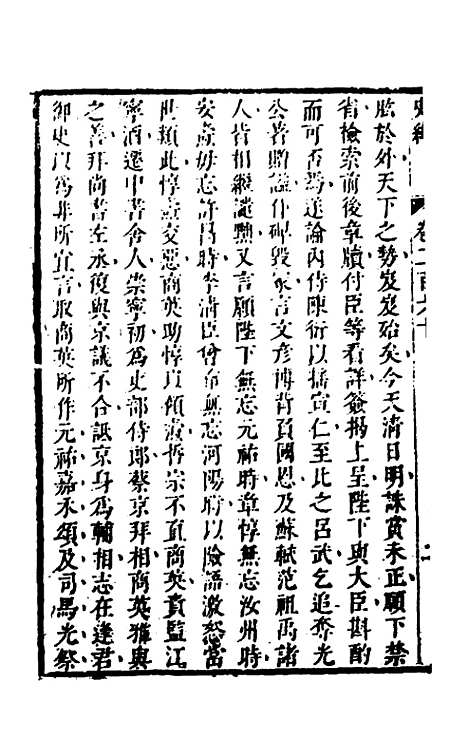 史緯 卷二百六十 二
肱於外天下之勢岌岌殆矣今天清日明誅賞未正願下禁
省檢索前後章牘付臣等看詳簽揭上呈陛下與大臣斟酌
而可否焉遂論內侍陳衍以搖宣仁至比之呂武乞追奪光
公著贈謚仆碑毀冢言文彥博背負國恩及蘇軾范祖禹諸
人皆相繼譴黜又言願陛下無忘元祐時章惇無忘汝州時
安燾毋忘許昌時李清臣曾布無忘河陽府以險語激怒當
世類此惇燾交惡商英助惇以傾燾哲宗不直商英責監江
寧酒遷中書舍人崇寧初為吏部侍郎蔡京拜相商英雅與
之善拜尚書左丞復與京議不合詆京身為輔相志在逢君
御史以為非所宜言取商英所作元祐嘉禾頌及司馬光祭